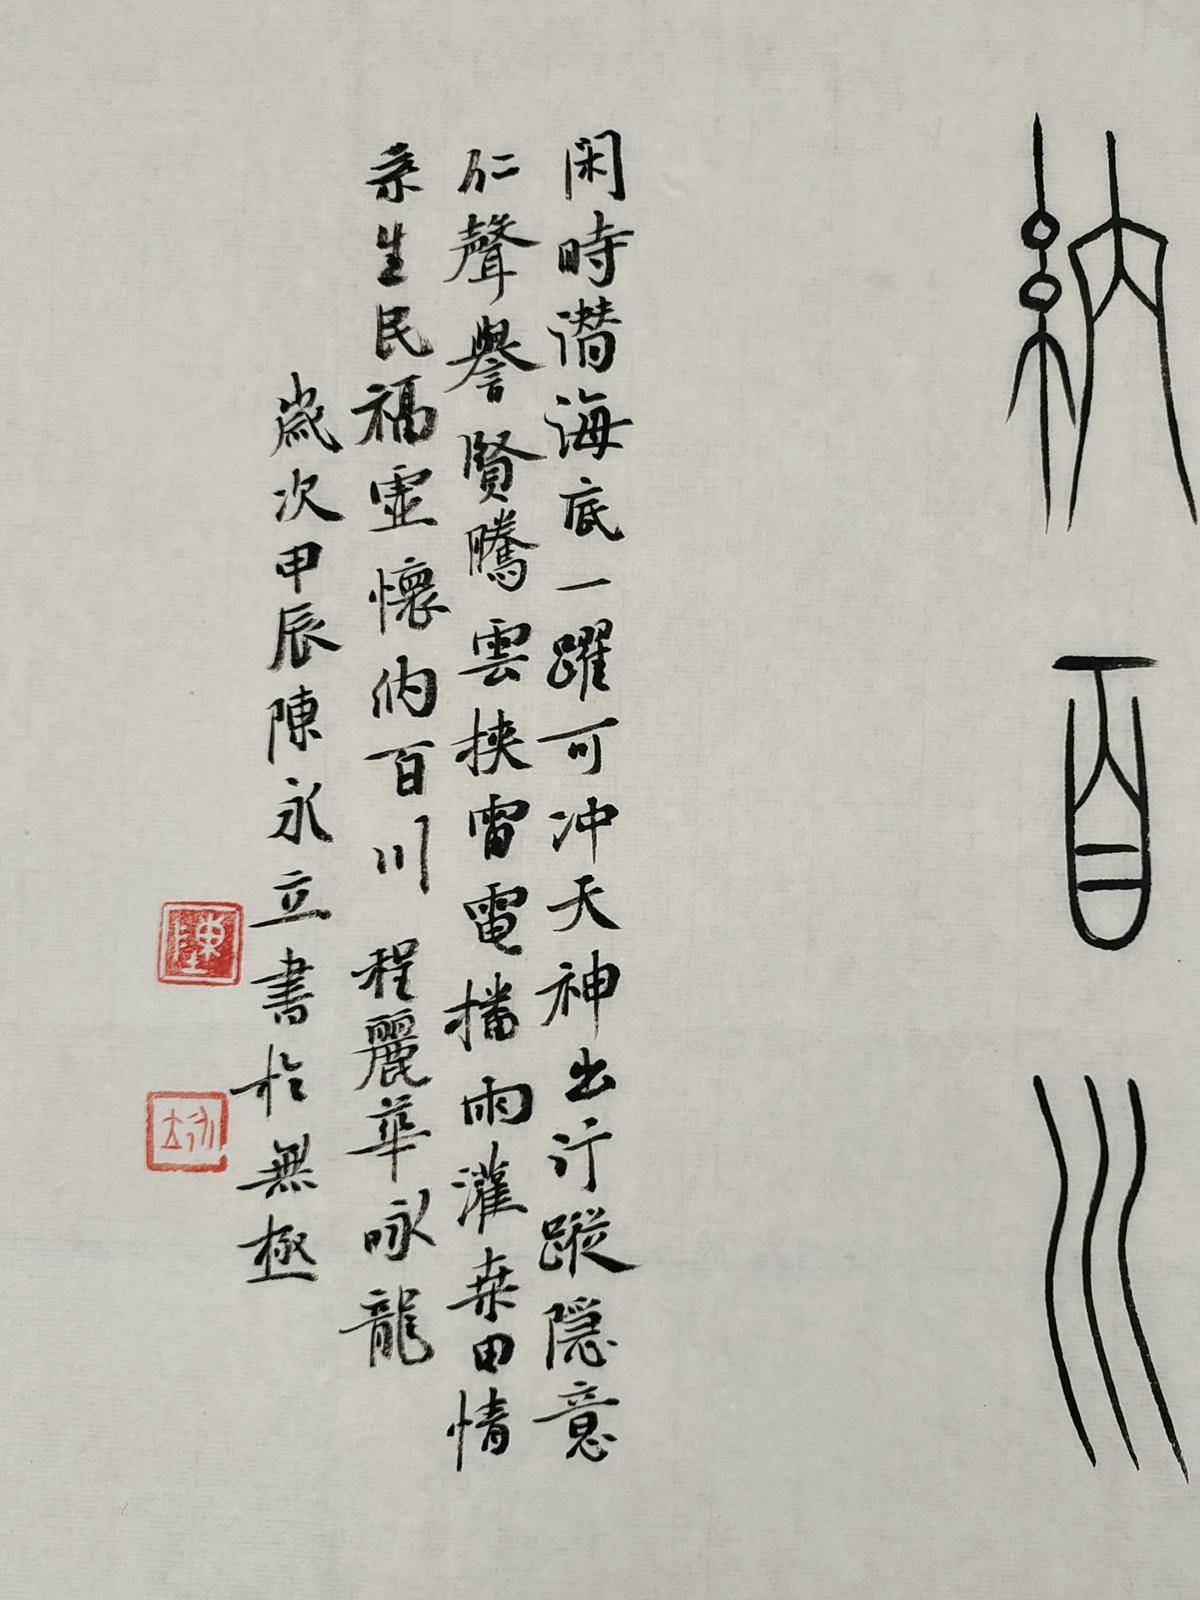 納百川
闲時潜海底一躍可冲天神出行蹤隐意
仁聲譽賢騰雲挾雷電播雨灌桑田情
系生民福虛懷納百川 程麗華咏龍
歲次甲辰陳永立書於無極
陳
永立